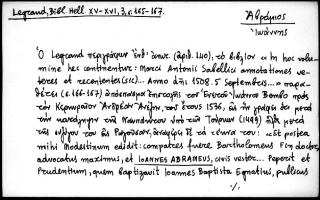 Legrand, Bibl. Hell. XV-XVI, 3, σ. 165-167.
Ἀβράμιος
Ἰωάννης
Ὁ Legrand περιγράφων ὑπ' ἀριθ. 140, τὸ βιβλίον « In hoc volu-
mine hec continentur: Marci Antonii Sabellici annotationes ve-
teres et recentiores (sic)... Anno d̅n̅i: 1508. 5 Septembris...» παρα-
θέτει (σ. 166-167) ἀπόσπασμα ἐπιστολῆς τοῦ Ἑνετοῦ Ἰωάννου Bembo πρὸς
τὸν Κερκυραῖον Ἀνδρέαν, τοῦ ἔτους 1536, ἐν ᾗ γράφει ὅτι μετὰ
τὴν ὑπὸ τῶν Τούρκων (1499)
τῆς συζύγου του εἰς τὰ τέκνα του: «Et postea
mihi Modestinum edidit: compatres fuere Bartholomeus Fin doctor,
advocatus maximus, et IOANNES ABRAMEUS, civis vester... Peperit et
Prudentium, quem baptizavit Ioannes Baptista Egnatius, publicus
./.